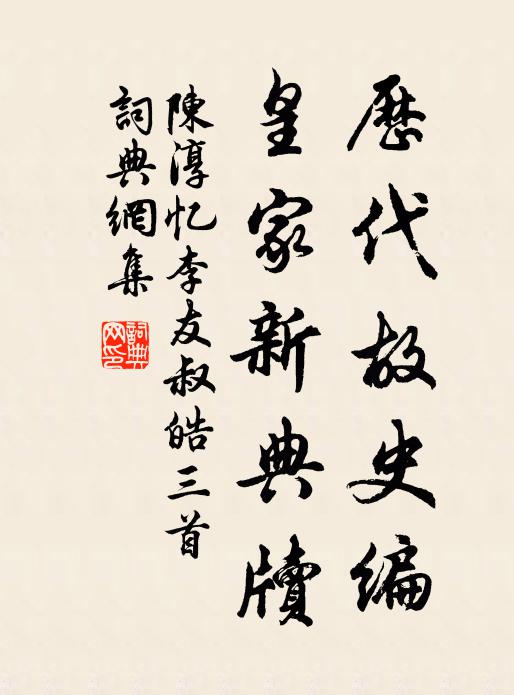 歷代故史編
皇家新典牘
陳淳忆李友叔皓三首
詞典網集
詞典
网印